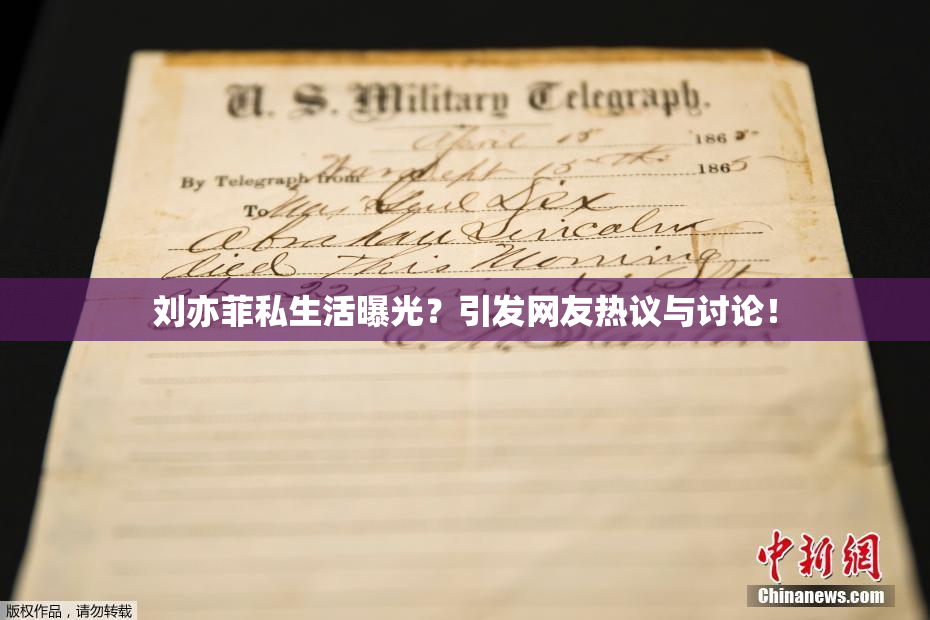 U. S. Military Telegraph.
April 15 1865
By Telegraph from War Dept 15th 1865
To Maj Genl Dix
Abraham Lincoln
died This Morning
at 22 minutes after
刘亦菲私生活曝光？引发网友热议与讨论！
E. M. Stanton
中新网
Chinanews.com
版权作品，请勿转载